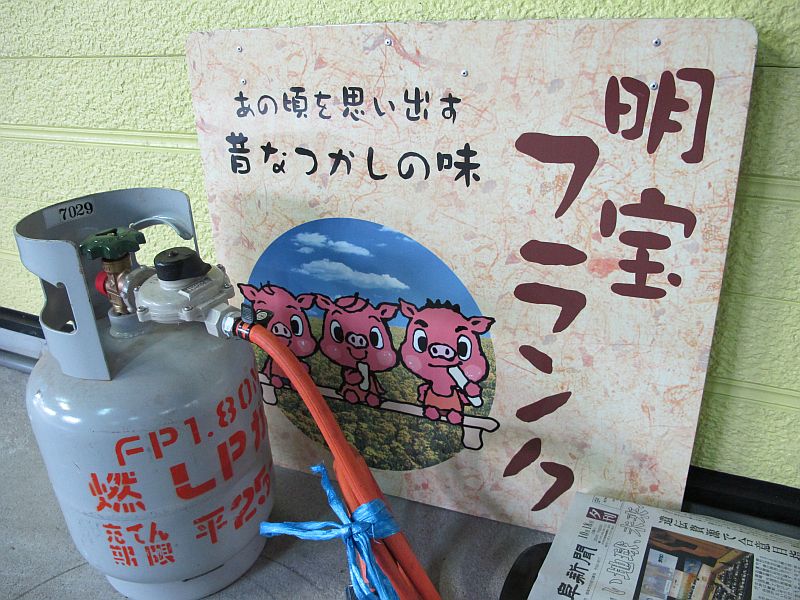 あの頃を思い出す
昔なつかしの味
明宝
フランク
7029
FP1.80
燃 LPガ
充てん
期限 平25
夕刊
阜新聞
遺伝資源で合意